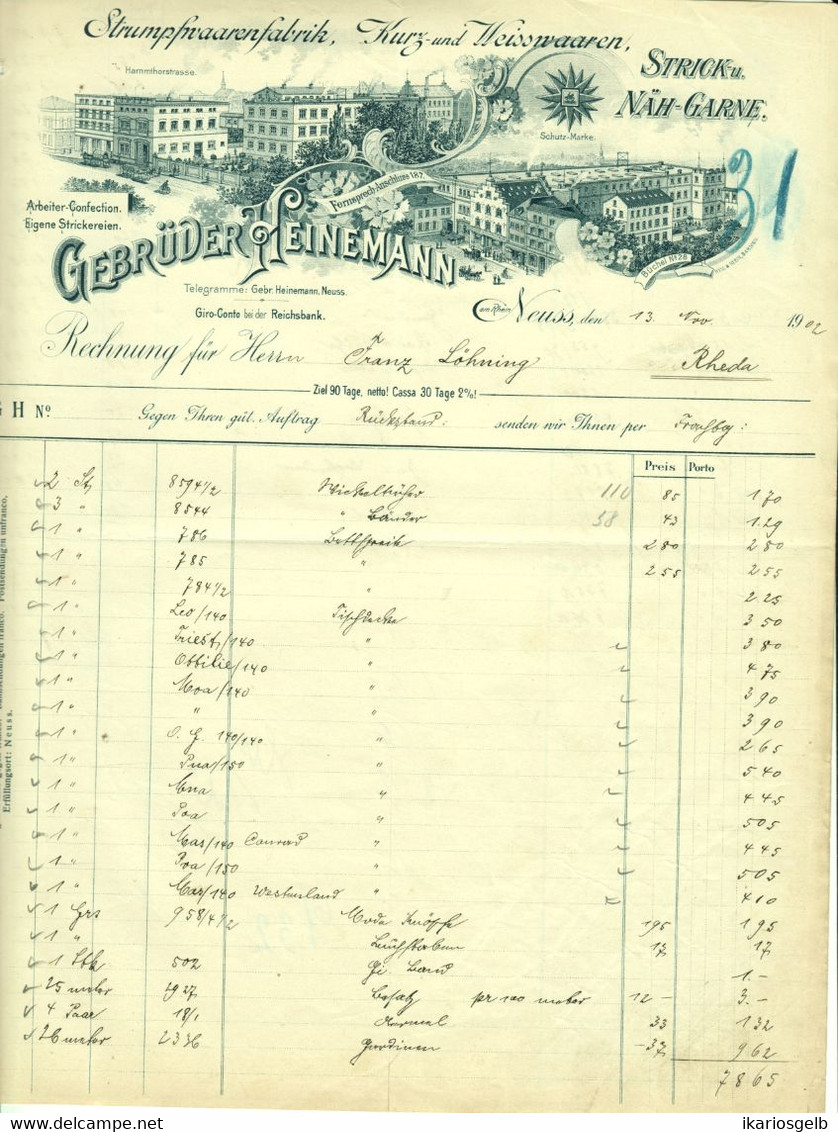 Strumpfwaarenfabrik, Kurz- und Weisswaaren,
STRICK- u.
NÄH-GARNE.
Hammthorstrasse.
Schutz-Marke.
31
Fernsprech-Anschluss 187.
Arbeiter-Confection.
Eigene Strickereien.
GEBRÜDER HEINEMANN
Büchel No 28
Telegramme: Gebr. Heinemann, Neuss.
Giro-Conto bei der Reichsbank.
am Rhein
Neuss, den 13. Nov. 1902
Rechnung für Herrn Franz Löhning Rheda
Ziel 90 Tage, netto! Cassa 30 Tage 2%!
G H No. Gegen Ihren gūt. Auftrag Rückstand: senden wir Ihnen per
Preis Porto
2 St 8594 1/2 Wickeltücher 110 85 170
3 " 8544 " Bänder 58 43 1.29
1 " 786 280 280
1 " 785 " 255 255
1 " 784 1/2 " 225
1 " Leo/140 Tischdecke 350
1 " Triest/140 " 380
1 " Ottilie/140 " 475
1 " Moa/140 " 390
1 " " " 390
1 " O. G. 140/140 " 265
1 " /150 " 540
1 " " 445
1 " " 505
1 " Mas/140 Conrad " 445
1 " /150 " 505
1 " /140 Westenland " 410
1 Grs 958/4 1/2 Mode Knöpfe 195 195
1 " Buchstaben 17 17
1 Stk 502 Band 1.-
25 meter 2927 Besatz pr 100 meter 12 - 3.-
4 Paar 18/1 Aermel 33 132
26 meter 2336 Gardinen -37 962
7865
Postsendungen unfranco.
Erfüllungsort: Neuss.
ikariosgelb